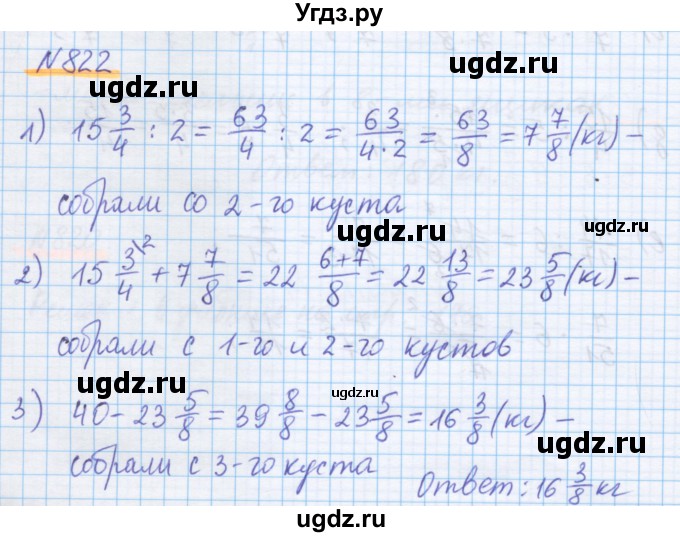 Угдз.ру
N 822
ugdz.ru ugdz.ru
1) 15 3/4 : 2 = 63/4 : 2 = 63/(4·2) = 63/8 = 7 7/8 (кг) –
собрали со 2-го куста
ugdz.ru ugdz.ru
2) 15 3/4\2 + 7 7/8 = 22 (6+7)/8 = 22 13/8 = 23 5/8 (кг) –
ugdz.ru
собрали с 1-го и 2-го кустов
ugdz.ru ugdz.ru
3) 40 – 23 5/8 = 39 8/8 – 23 5/8 = 16 3/8 (кг) –
ugdz.ru
собрали с 3-го куста
Ответ: 16 3/8 кг
ugdz.ru